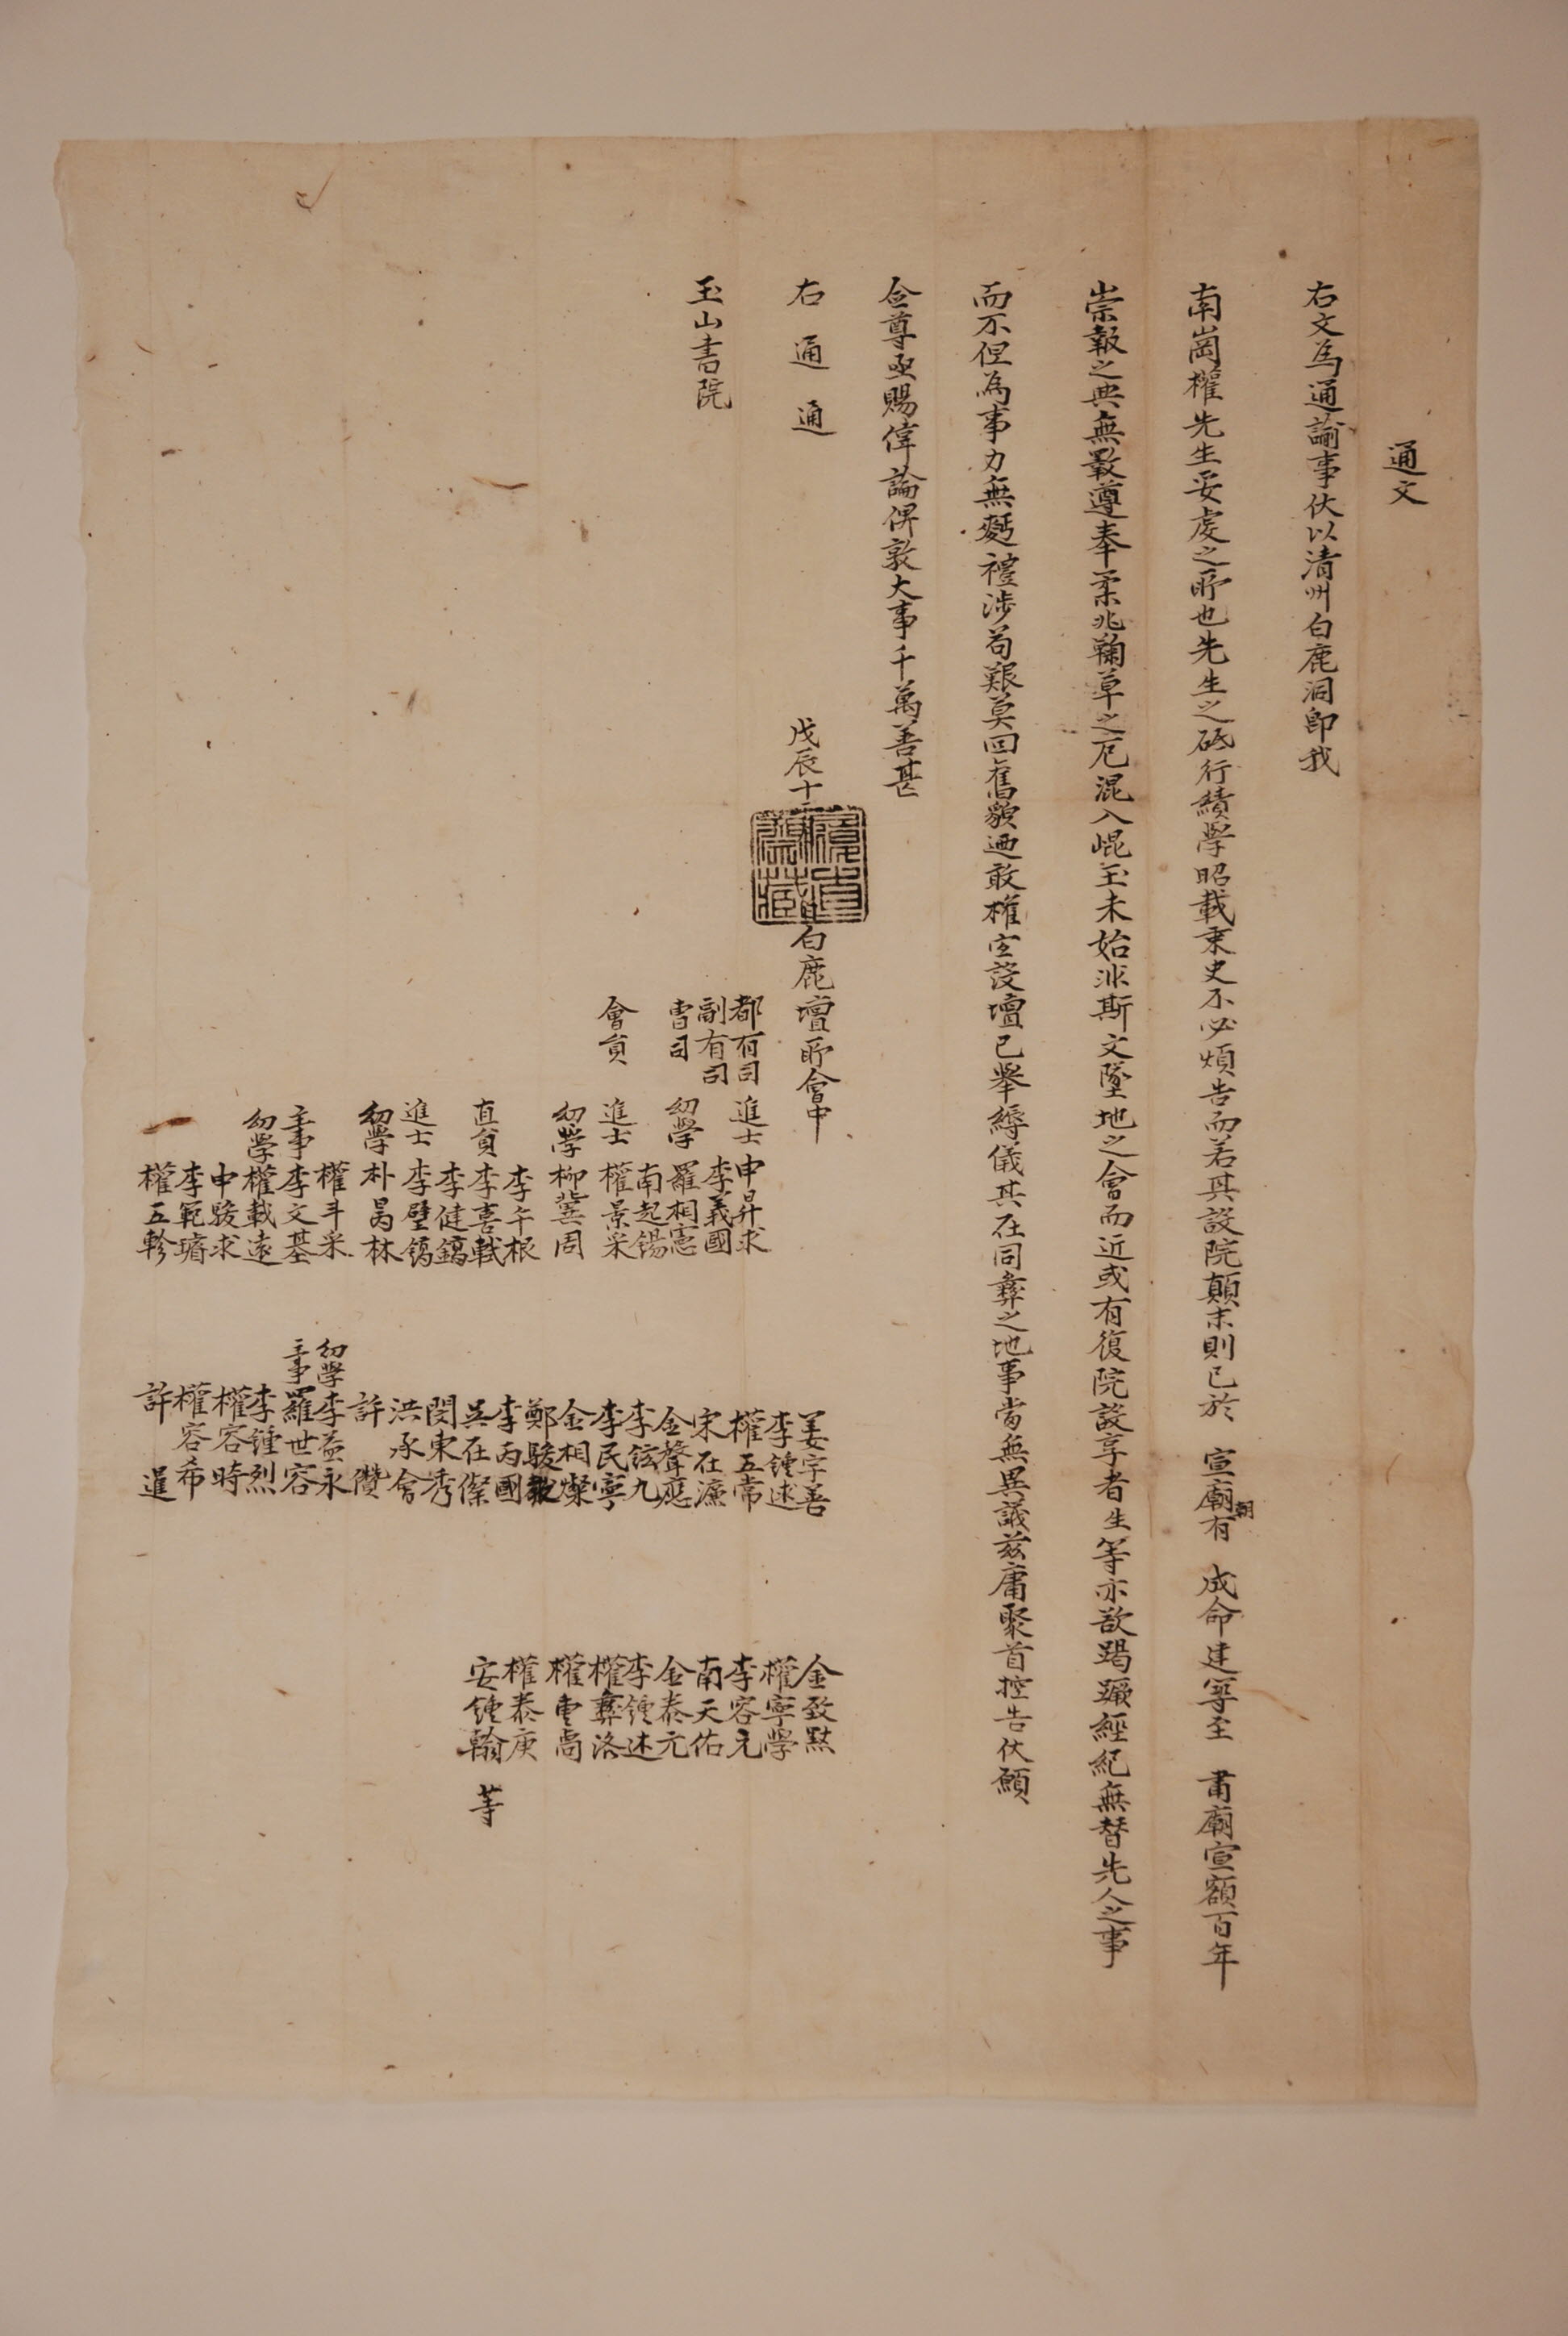 通文
右文爲通諭事伏以清州白鹿洞即我
南崗權先生妥虔之所也先生之砥行績學昭載乘史不必煩告而若其設院顛末則已於 宣廟朝有 成命建寧至 肅廟宣額百年
崇報之典無斁遵奉柔兆鞠草之厄混入崐玉未始非斯文墜地之會而近或有復院設享者生等亦欲竭蹶經紀無替先人之事
而不但為事力無麪禮涉苟艱莫回舊貌迺敢權宜設壇已舉縟儀其在同彝之地事當無異議玆庸聚首控告伏願
僉尊亟賜偉論俾敦大事千萬善甚
右通通
玉山書院
戊辰十二 白鹿壇所會中
都有司 進士 申昇求
副有司 李義國
曺司 幼學 羅相憲
南起錫
會員 進士 權景采
幼學 柳冀周
李午根
直員 李喜軾
李健鎬
進士 李璧鎬
幼學 朴昺林
權斗采
主事 李文基
幼學 權載遠
申駿求
李範瑨
權五軫
姜宇善
李鍾述
權五常
宋在濂
金聲應
李鉉九
李民寧
金相燦
鄭駿
李丙國
吳在傑
閔東秀
洪承會
許儹
幼學 李益永
主事 羅世容
李鍾烈
權容時
權容希
許暹
金致默
權寧學
李容元
南天佑
金泰元
李鍾述
權彝洛
權重尚
權泰庚
安鍾翰 等